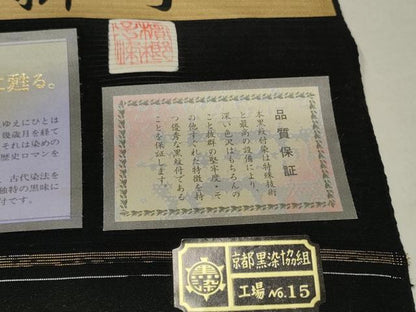 に甦る。
ゆえにひとは
幾歳月を経て
それは染めの
歴史ロマンを
古代染法を
独特の黒味に
付です。
品質保証
本黒紋付染は特殊技術
と最高の設備により、
深い色沢はもちろんの
こと抜群の堅牢度・そ
の他すぐれた特徴を持
つ優秀な黒紋付である
ことを保証します。
京都黒染協組
工場 No.15